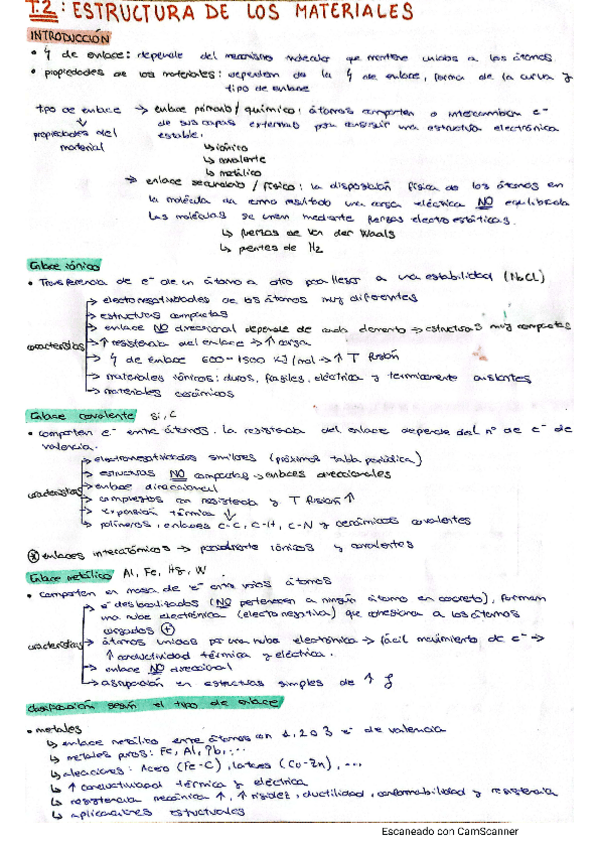 T.2: ESTRUCTURA DE LOS MATERIALES
INTRODUCCIÓN
• ϟ de enlace: depende del mecanismo molecular que mantiene unidos a los átomos
• propiedades de los materiales: dependen de la ϟ de enlace, forma de la curva y
tipo de enlace
tipo de enlace → enlace primario/químico: átomos comparten o intercambian e⁻
↓ de sus capas externas para conseguir una estructura electrónica
propiedades del estable.
material ↳ iónico
↳ covalente
↳ metálico
→ enlace secundario/físico: la disposición física de los átomos en
la molécula da como resultado una carga eléctrica NO equilibrada
Las moléculas se unen mediante fuerzas electroestáticas.
↳ fuerzas de Van der Waals
↳ puentes de H₂
Enlace iónico
• Transferencia de e⁻ de un átomo a otro para llegar a una estabilidad (NaCl)
→ electronegatividades de los átomos muy diferentes
→ estructuras compactas
→ enlace NO direccional depende de cada elemento → estructuras muy compactas
características → ↑ resistencia del enlace → ↑ carga
→ ϟ de enlace 600-1500 KJ/mol → ↑ T fusión
→ materiales iónicos: duros, frágiles, eléctrica y térmicamente aislantes
→ materiales cerámicos
Enlace covalente Si, C
• comparten e⁻ entre átomos. La resistencia del enlace depende del nº de e⁻ de
valencia.
→ electronegatividades similares (próximos tabla periódica)
→ estructuras NO compactas → enlaces direccionales
características → enlace direccional
→ compuestos con resistencia y T fusión ↑
→ expansión térmica ↓
→ polímeros, enlaces C-C, C-H, C-N y cerámicos covalentes
⊛ enlaces interatómicos → parcialmente iónicos y covalentes
Enlace metálico Al, Fe, Hg, W
• comparten en masa de e⁻ entre varios átomos
→ e⁻ deslocalizados (NO pertenecen a ningún átomo en concreto), forman
una nube electrónica (electronegativa) que cohesiona a los átomos
cargados ⊕
características → átomos unidos por una nube electrónica → fácil movimiento de e⁻ →
↑ conductividad térmica y eléctrica.
→ enlace NO direccional
→ agrupación en estructuras simples de ↑ ρ
Clasificación según el tipo de enlace
• metales
↳ enlace metálico entre átomos con 1, 2 o 3 e⁻ de valencia
↳ metales puros: Fe, Al, Pb, ...
↳ aleaciones: Acero (Fe-C), latones (Cu-Zn), ...
↳ ↑ conductividad térmica y eléctrica
↳ resistencia mecánica ↑, ↑ rigidez, ductilidad, conformabilidad y resistencia
↳ aplicaciones estructurales
Escaneado con CamScanner